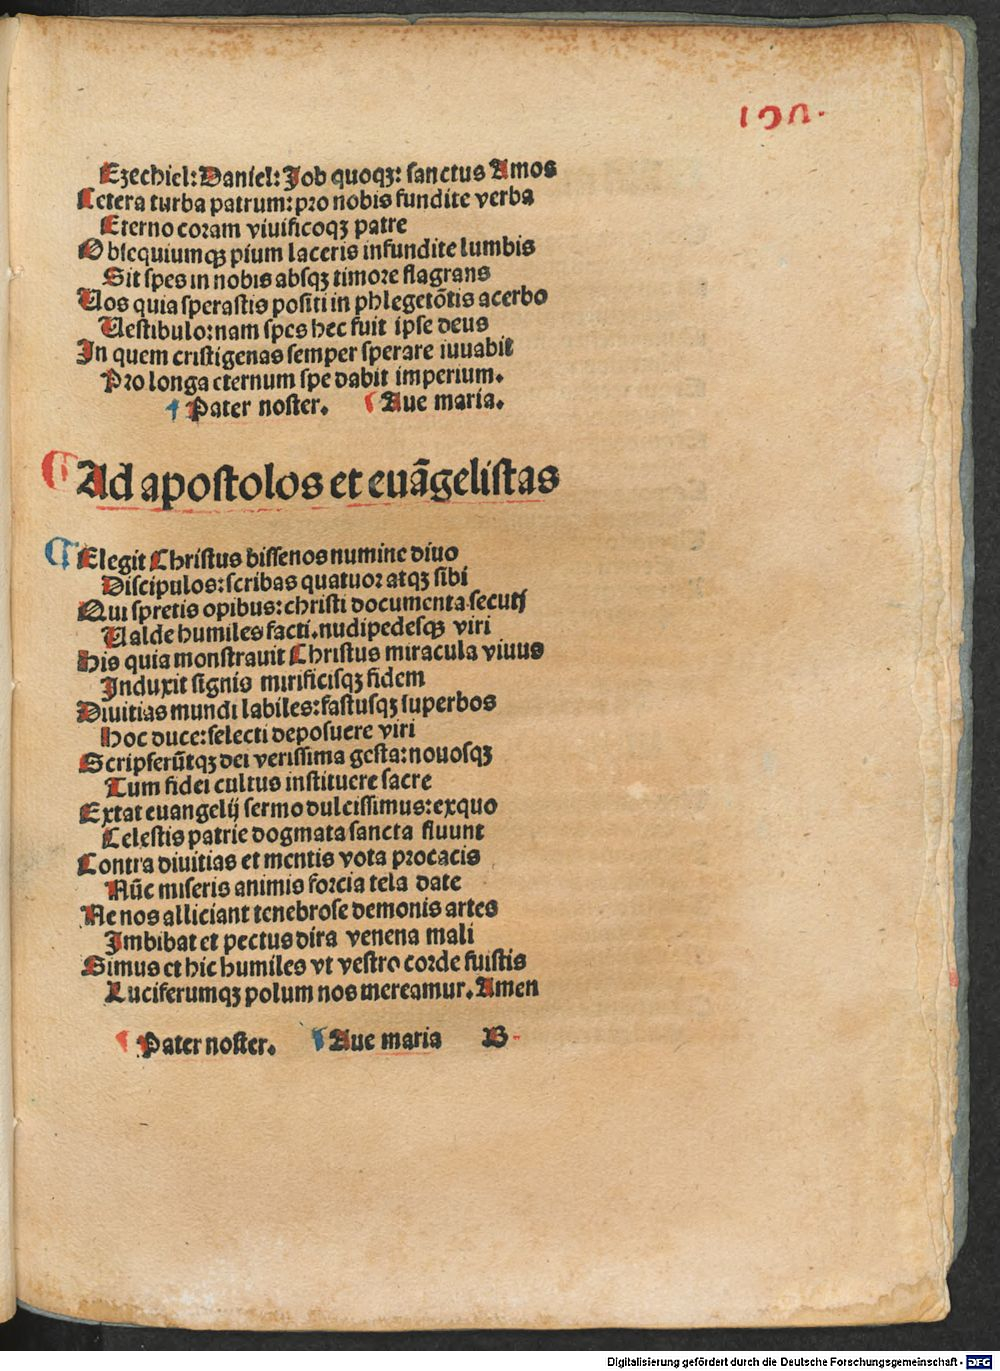 190.
Ezechiel: Daniel: Job quoqꝫ: sanctus Amos
Cetera turba patrum: pro nobis fundite verba
Eterno coram viuificoqꝫ patre
Obsequiumqꝫ pium laceris infundite lumbis
Sit spes in nobis absqꝫ timore flagrans
Uos quia sperastis positi in phlegetōtis acerbo
Uestibulo: nam spes hec fuit ipse deus
In quem cristigenas semper sperare iuuabit
Pro longa eternum spe dabit imperium.
¶ Pater noster. ¶ Aue maria.
¶ Ad apostolos et euāgelistas
¶ Elegit Christus bissenos numine diuo
Discipulos: scribas quatuor atqꝫ sibi
Qui spretis opibus: christi documenta secutj
Ualde humiles facti. nudipedesqꝫ viri
His quia monstrauit Christus miracula viuus
Induxit signis mirificisqꝫ fidem
Diuitias mundi labiles: fastusqꝫ superbos
Hoc duce: selecti deposuere viri
Scripserūtqꝫ dei verissima gesta: nouosqꝫ
Tum fidei cultus instituere sacre
Extat euangelij sermo dulcissimus: exquo
Celestis patrie dogmata sancta fluunt
Contra diuitias et mentis vota procacis
Nūc miseris animis forcia tela date
Ne nos alliciant tenebrose demonis artes
Imbibat et pectus dira venena mali
Simus et hic humiles vt vestro corde fuistis
Luciferumqꝫ polum nos mereamur. Amen
¶ Pater noster. ¶ Aue maria B
Digitalisierung gefördert durch die Deutsche Forschungsgemeinschaft - DFG